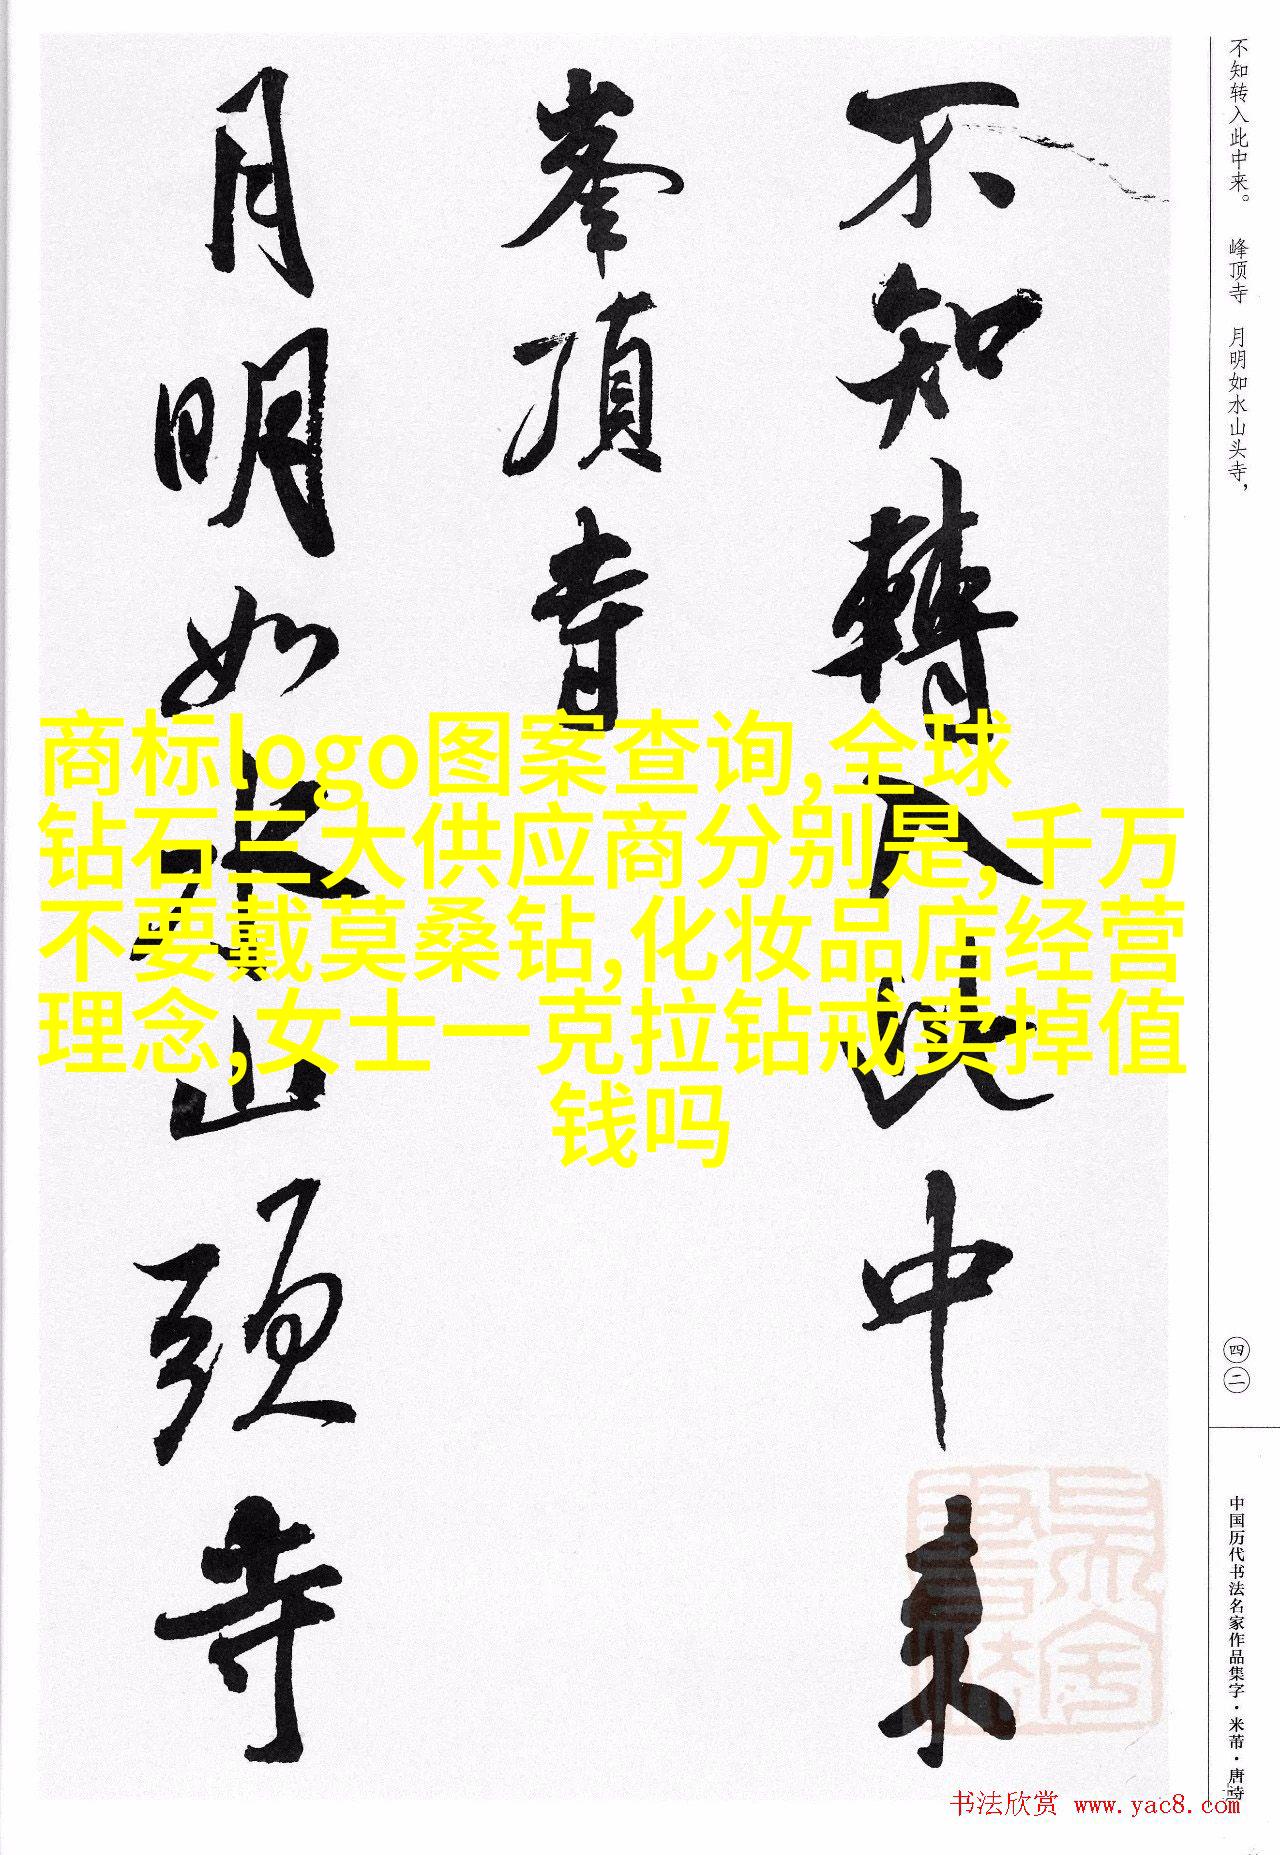 不知转入此中来。 峰顶寺 月明如水山头寺，
不知轉入此中来
峯頂寺
月明如水山頭寺
商标logo图案查询,全球
钻石三大供应商分别是,千万
不要戴莫桑钻,化妆品店经营
理念,女士一克拉钻戒卖掉值
钱吗
四二
中国历代书法名家作品集字·米芾·唐诗
书法欣赏 www.yac8.com